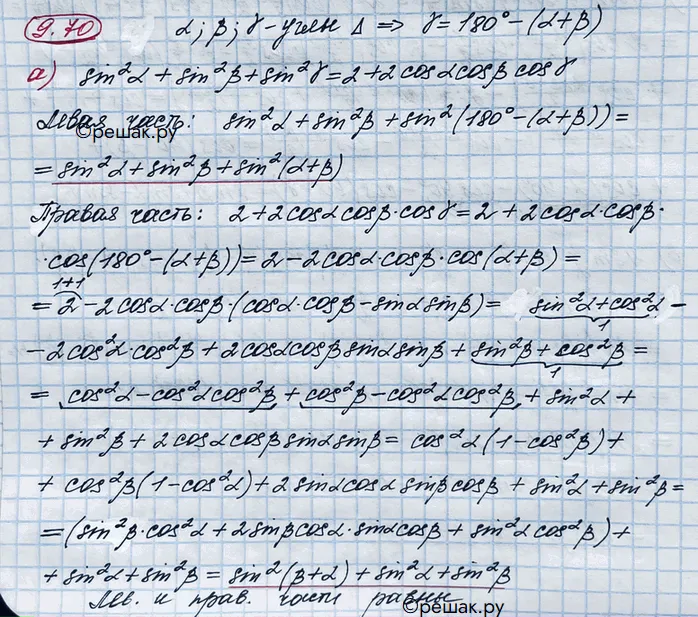 9.70 α; β; γ - углы Δ ⇒ γ = 180° - (α+β)
а) sin²α + sin²β + sin²γ = 2 + 2 cosα cosβ cosγ
Левая часть: sin²α + sin²β + sin²(180° - (α+β)) =
©решак.ру
= sin²α + sin²β + sin²(α+β)
Правая часть: 2 + 2cosα cosβ · cosγ = 2 + 2cosα · cosβ ·
· cos(180° - (α+β)) = 2 - 2cosα · cosβ · cos(α+β) =
1+1
= 2 - 2cosα · cosβ · (cosα · cosβ - sinα sinβ) = sin²α + cos²α -
1
- 2cos²α · cos²β + 2cosα cosβ sinα sinβ + sin²β + cos²β =
1
= cos²α - cos²α cos²β + cos²β - cos²α cos²β + sin²α +
+ sin²β + 2 cosα cosβ sinα sinβ = cos²α (1 - cos²β) +
+ cos²β (1 - cos²α) + 2 sinα cosα sinβ cosβ + sin²α + sin²β =
= (sin²β · cos²α + 2sinβ cosα · sinα cosβ + sin²α cos²β) +
+ sin²α + sin²β = sin²(β+α) + sin²α + sin²β
Лев. и прав. части равны
©решак.ру